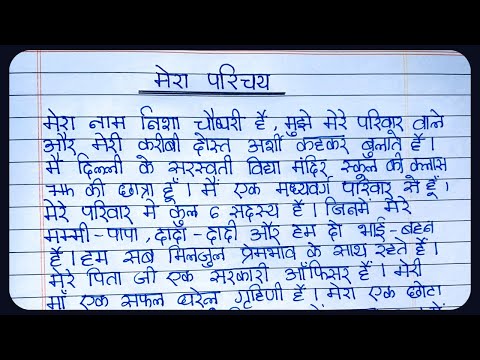 मेरा परिचय
मेरा नाम निशा चौधरी है, मुझे मेरे परिवार वाले
और मेरी करीबी दोस्त अर्शी कहकर बुलाते हैं।
मैं दिल्ली के सरस्वती विद्या मंदिर स्कूल की क्लास
7th की छात्रा हूँ। मैं एक मध्यवर्ग परिवार से हूँ।
मेरे परिवार में कुल 6 सदस्य है। जिनमें मेरे
मम्मी-पापा, दादा-दादी और हम दो भाई-बहन
हैं।हम सब मिलजुल प्रेमभाव के साथ रहते हैं।
मेरे पिता जी एक सरकारी ऑफिसर हैं। मेरी
माँ एक सफल घरेलू गृहिणी हैं। मेरा एक छोटा